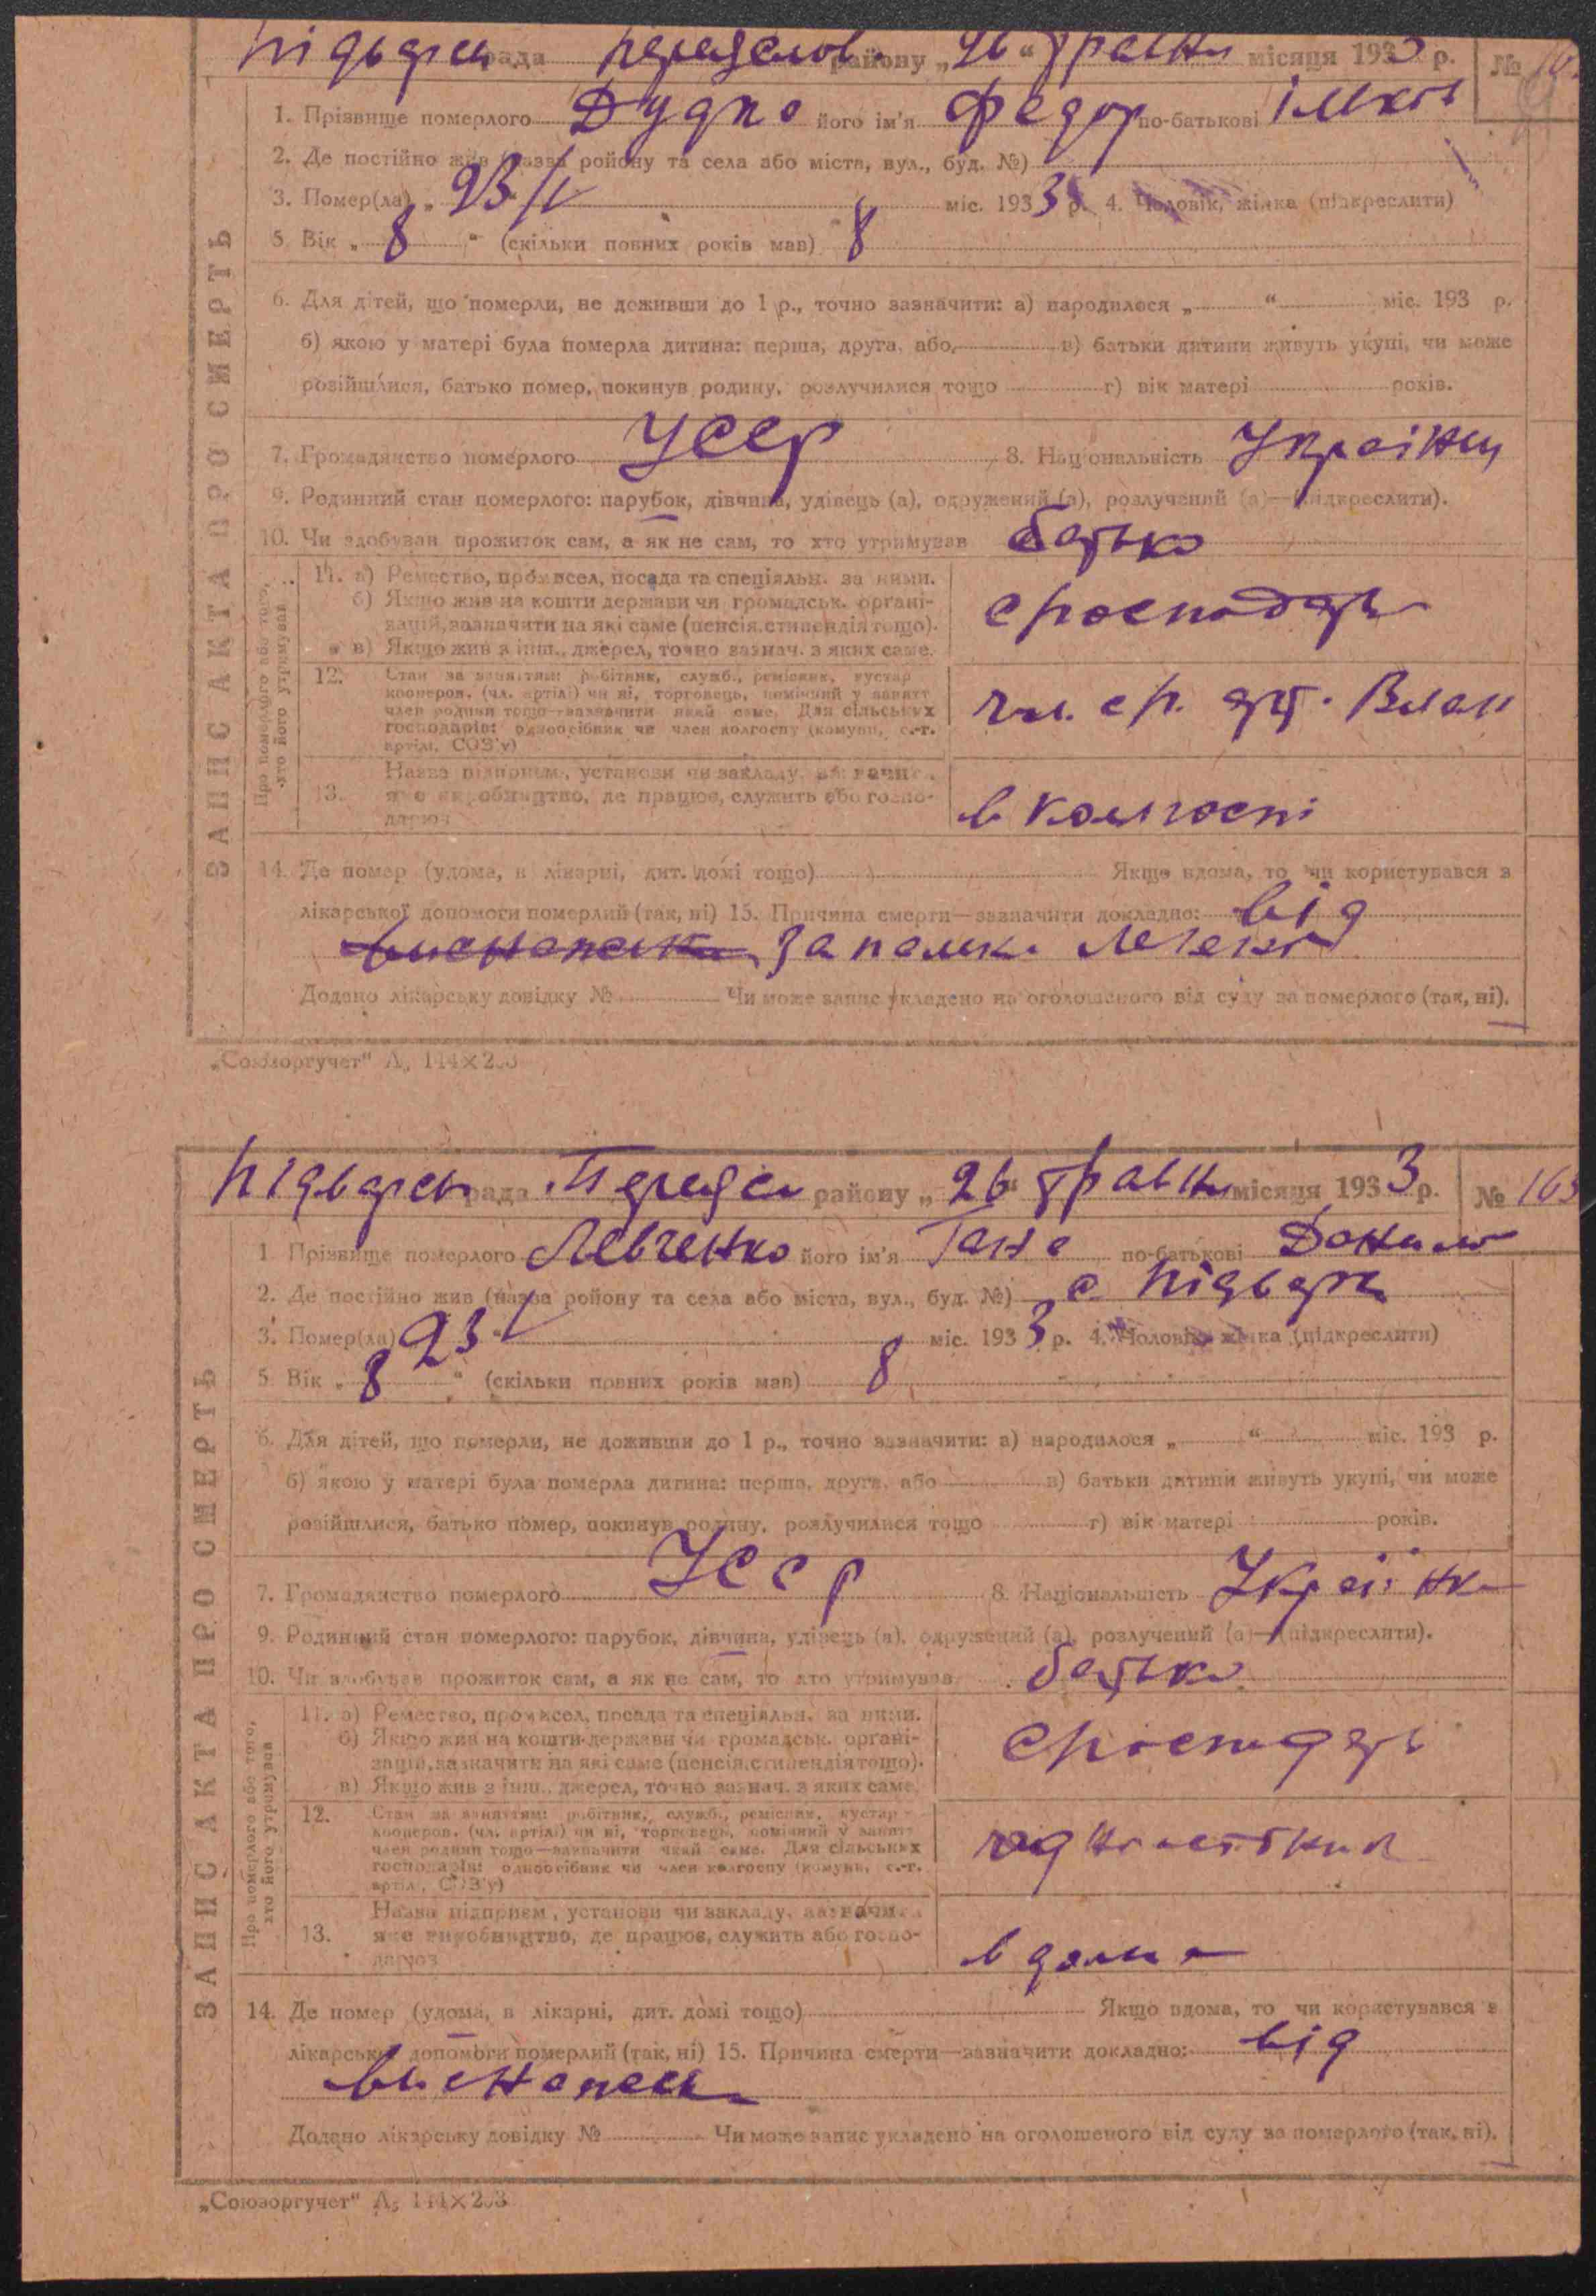 Підварсь рада Переяслов. району „26“ травня місяця 1933 р. №
1. Прізвище померлого Дудко його ім'я Федор по-батькові
2. Де постійно жив (назва району та села або міста, вул., буд. №)
3. Помер(ла) „ 23/V міс. 1933 р. 4. Чоловік, жінка (підкреслити)
5. Вік „ 8 “ (скільки повних років мав) 8
6. Для дітей, що померли, не доживши до 1 р., точно зазначити: а) народилося „ “ міс. 193 р.
б) якою у матері була померла дитина: перша, друга, або в) батьки дитини живуть укупі, чи може
розійшлися, батько помер, покинув родину, розлучилися тощо г) вік матері років.
7. Громадянство померлого УССР 8. Національність Українц
9. Родинний стан померлого: парубок, дівчина, удівець (а), одружений (а), розлучений (а)—(підкреслити).
10. Чи здобував прожиток сам, а як не сам, то хто утримував батько
11. а) Ремество, промисел, посада та спеціяльн. за ними.
б) Якщо жив на кошти держави чи громадськ. органі-
зацій, зазначити на які саме (пенсія, стипендія тощо).
в) Якщо жив з інш., джерел, точно зазнач. з яких саме.
схоесподарь
12. Стан за заняттям: робітник, служб., ремісник, кустар
кооперов. (чл. артілі) чи ні, торговець, помічний у занятт
член родини тощо—зазначити який саме. Для сільських
господарів: одноосібник чи член колгоспу (комуни, с.-г.
артілі, СОЗ'у)
чл. ср. арт.
13. Назва підприєм., установи чи закладу, зазначит.
яке виробництво, де працює, служить або госпо-
дарює
в колгоспі
14. Де помер (удома, в лікарні, дит. домі тощо) Якщо вдома, то чи користувався з
лікарської допомоги померлий (так, ні) 15. Причина смерти—зазначити докладно: від
запалки легенів
Додано лікарську довідку № Чи може запис укладено на оголошеного від суду за померлого (так, ні).
ЗАПИС АКТА ПРО СМЕРТЬ
Про померлого або того,
хто його утримував
„Союзоргучет“ А5 144×203
Підварсь рада Переясл району „26“ травня місяця 1933 р. № 163
1. Прізвище померлого Левченко його ім'я Ганя по-батькові Данило
2. Де постійно жив (назва району та села або міста, вул., буд. №) с Підварк
3. Помер(ла) „ 23 V міс. 1933 р. 4. Чоловік, жінка (підкреслити)
5. Вік „ 8 “ (скільки повних років мав) 8
6. Для дітей, що померли, не доживши до 1 р., точно зазначити: а) народилося „ “ міс. 193 р.
б) якою у матері була померла дитина: перша, друга, або в) батьки дитини живуть укупі, чи може
розійшлися, батько помер, покинув родину, розлучилися тощо г) вік матері років.
7. Громадянство померлого УССР 8. Національність Українк
9. Родинний стан померлого: парубок, дівчина, удівець (а), одружений (а), розлучений (а)—(підкреслити).
10. Чи здобував прожиток сам, а як не сам, то хто утримував батько
11. а) Ремество, промисел, посада та спеціяльн. за ними.
б) Якщо жив на кошти держави чи громадськ. органі-
зацій, зазначити на які саме (пенсія, стипендія тощо).
в) Якщо жив з інш., джерел, точно зазнач. з яких саме.
схосподарь
12. Стан за заняттям: робітник, служб., ремісник, кустар
кооперов. (чл. артілі) чи ні, торговець, помічний у занятт
член родини тощо—зазначити який саме. Для сільських
господарів: одноосібник чи член колгоспу (комуни, с.-г.
артілі, СОЗ'у)
13. Назва підприєм., установи чи закладу, зазначит.
яке виробництво, де працює, служить або госпо-
дарює
вдома
14. Де помер (удома, в лікарні, дит. домі тощо) Якщо вдома, то чи користувався з
лікарської допомоги померлий (так, ні) 15. Причина смерти—зазначити докладно: від
виснаження
Додано лікарську довідку № Чи може запис укладено на оголошеного від суду за померлого (так, ні).
ЗАПИС АКТА ПРО СМЕРТЬ
Про померлого або того,
хто його утримував
„Союзоргучет“ А5 144×203